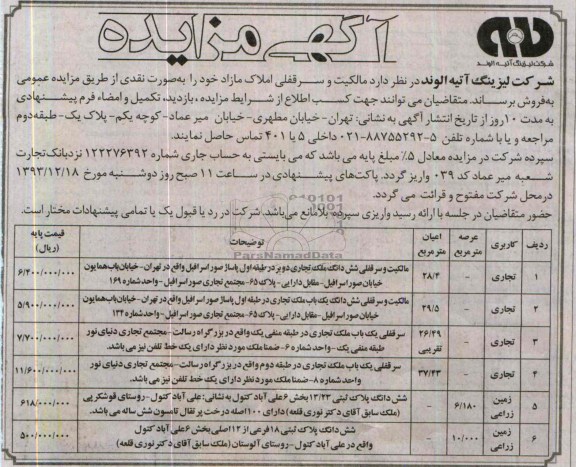 آگهی مزایده
شرکت لیزینگ آتیه الوند
شرکت لیزینگ آتیه الوند در نظر دارد مالکیت و سرقفلی املاک مازاد خود را به‌صورت نقدی از طریق مزایده عمومی
به‌فروش برساند. متقاضیان می توانند جهت کسب اطلاع از شرایط مزایده، بازدید، تکمیل و امضاء فرم پیشنهادی
به مدت ۱۰ روز از تاریخ انتشار آگهی به نشانی: تهران- خیابان مطهری- خیابان میرعماد- کوچه یکم- پلاک یک- طبقه‌دوم
مراجعه و یا با شماره تلفن ۵-۸۸۷۵۵۲۹۲-۰۲۱ داخلی ۵ یا ۴۰۱ تماس حاصل نمایند.
سپرده شرکت در مزایده معادل ۵٪ مبلغ پایه می باشد که می بایستی به حساب جاری شماره ۱۲۲۲۷۶۳۹۲ نزد بانک تجارت
شعبه میرعماد کد ۰۳۹ واریز گردد. پاکت‌های پیشنهادی در ساعت ۱۱ صبح روز دوشنبه مورخ ۱۳۹۳/۱۲/۱۸
در محل شرکت مفتوح و قرائت می گردد.
حضور متقاضیان در جلسه با ارائه رسید واریزی سپرده بلامانع می‌باشد. شرکت در رد یا قبول یک یا تمامی پیشنهادات مختار است.
ردیف کاربری عرصه مترمربع اعیان مترمربع توضیحات قیمت پایه (ریال)
۱ تجاری - ۲۸/۴ مالکیت و سرقفلی شش دانگ ملک تجاری دو بر در طبقه اول پاساژ صور اسرافیل واقع در تهران- خیابان باب همایون ۶/۴۰۰/۰۰۰/۰۰۰
خیابان صور اسرافیل- مقابل دارایی- پلاک ۶۵- مجتمع تجاری صور اسرافیل- واحد شماره ۱۶۹
۲ تجاری - ۲۹/۵ مالکیت و سرقفلی شش دانگ یک باب ملک تجاری در طبقه اول پاساژ صور اسرافیل واقع در تهران- خیابان باب همایون ۵/۹۰۰/۰۰۰/۰۰۰
خیابان صور اسرافیل- مقابل دارایی- پلاک ۶۵- مجتمع تجاری صور اسرافیل- واحد شماره ۱۲۴
۳ تجاری - ۲۶/۴۹ تقریبی سرقفلی یک باب ملک تجاری در طبقه منفی یک واقع در بزرگراه رسالت- مجتمع تجاری دنیای نور ۷/۷۰۰/۰۰۰/۰۰۰
طبقه منفی یک- واحد شماره ۶- ضمنا ملک مورد نظر دارای یک خط تلفن نیز می باشد.
۴ تجاری - ۳۷/۴۳ سرقفلی یک باب ملک تجاری در طبقه دوم واقع در بزرگراه رسالت- مجتمع تجاری دنیای نور ۱۱/۶۰۰/۰۰۰/۰۰۰
واحد شماره ۸- ضمنا ملک مورد نظر دارای یک خط تلفن نیز می باشد.
۵ زمین زراعی ۶/۱۸۰ - شش دانگ پلاک ثبتی ۱۳/۴۳ بخش ۶ علی آباد کتول به نشانی: علی آباد کتول- روستای قوشکرپی ۶۱۸/۰۰۰/۰۰۰
(ملک سابق آقای دکتر نوری قلعه) دارای ۱۰۰ اصله درخت پرتقال تامسون شش ساله می باشد.
۶ زمین زراعی ۱۰/۰۰۰ - شش دانگ پلاک ثبتی ۱۸ فرعی از ۱۲ اصلی بخش ۶ علی آباد کتول ۵۰۰/۰۰۰/۰۰۰
واقع در علی آباد کتول- روستای آلوستان (ملک سابق آقای دکتر نوری قلعه)
ParsNamadData